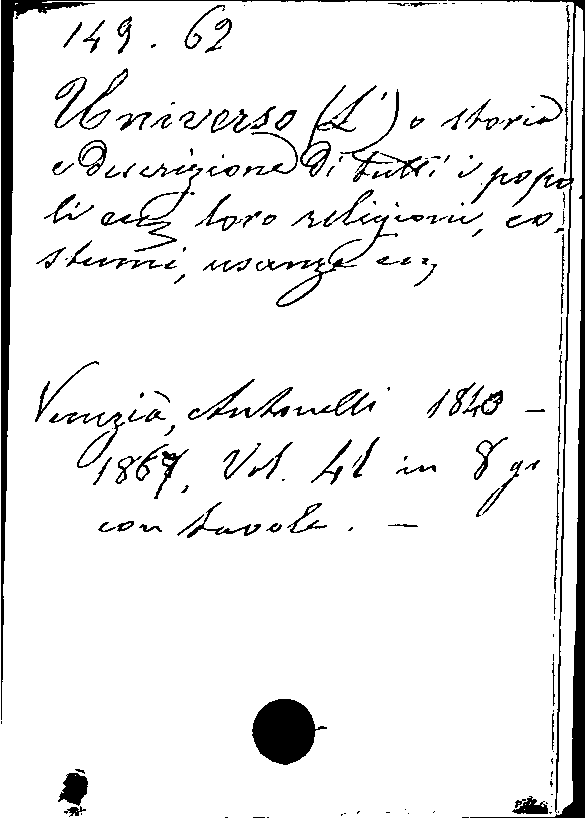 149. 62
Universo (L') o storia
e descrizione di tutti i popo
li ecc loro religioni, co-
stumi, usanze ecc
Venezia, Antonelli 1840 -
1867, Vol. 41 in 8 gr
con tavole. -